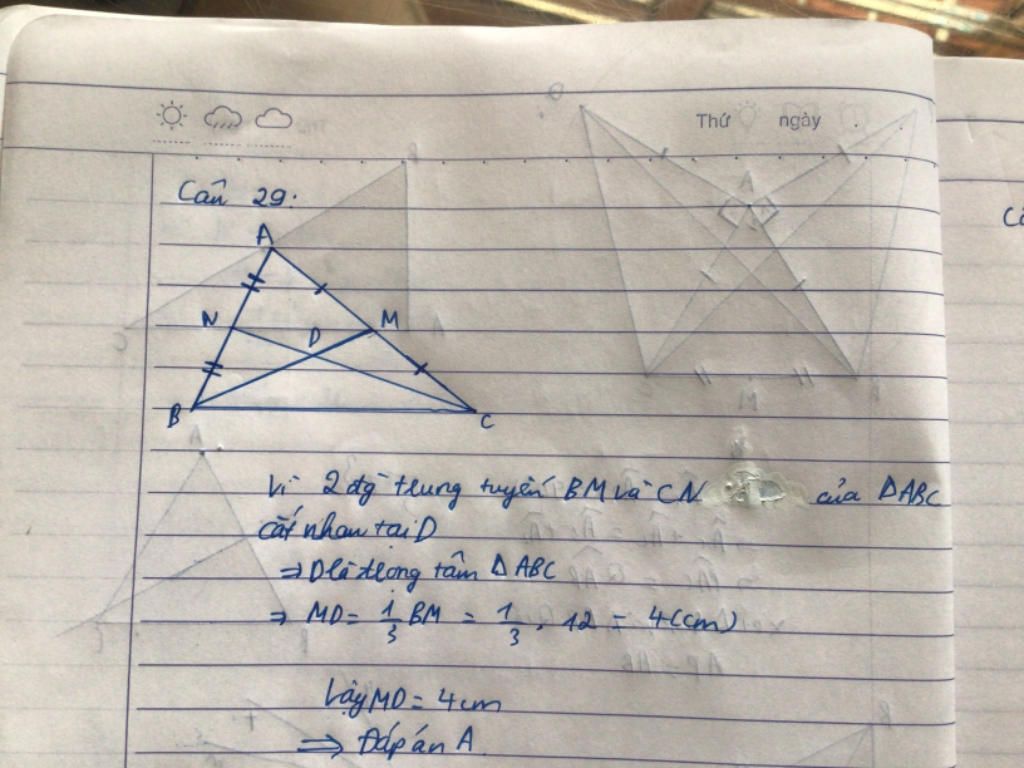 Thứ ngày
Câu 29:
A
N
M
D
B
C
Vì 2 đg trung tuyến BM và CN của ΔABC
cắt nhau tại D
⇒ D là trọng tâm ΔABC
⇒ MD = 1/3 BM = 1/3 . 12 = 4 (cm)
Vậy MD = 4 cm
⇒ Đáp án A